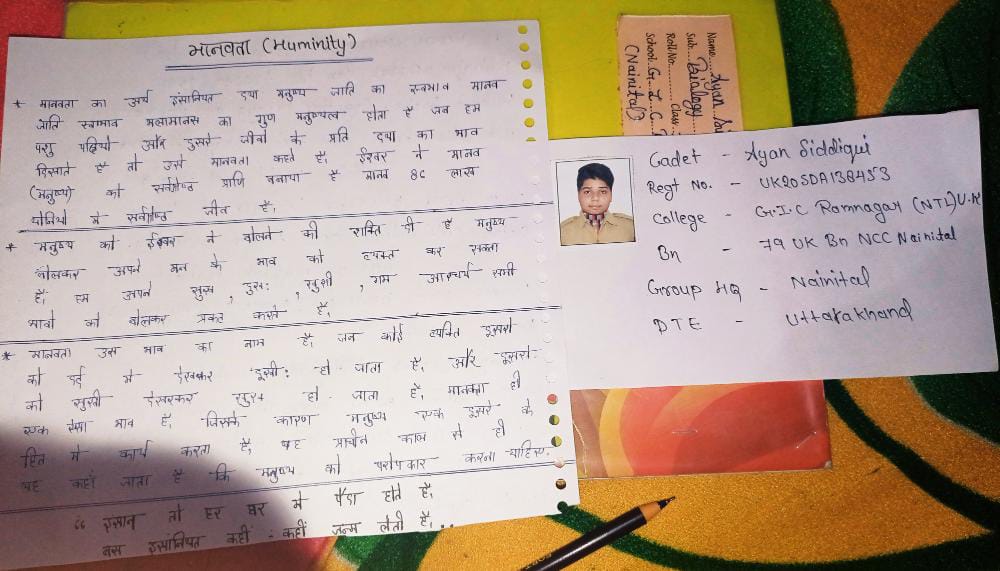 मानवता (Huminity)
* मानवता का अर्थ इंसानियत दया मनुष्य जाति का स्वभाव मानव
जाति स्वभाव भलामानस का गुण मनुष्यत्व होता है जब हम
पशु पक्षियो और दुसरे जीवो के प्रति दया का भाव
दिखाते है तो उसे मानवता कहते है, ईश्वर ने मानव
(मनुष्य) को सर्वश्रेष्ठ प्राणि बनाया है मानव 86 लाख
योनियो मे सर्वश्रेष्ठ जीव है,
* मनुष्य को ईश्वर ने बोलने की शक्ति दी है मनुष्य
बोलकर अपने मन के भाव को व्यक्त कर सकता
है, हम अपने सुख, दुख:, खुशी, गम आश्चर्य सभी
भावो को बोलकर प्रकट करते है,
* मानवता उस भाव का नाम है, जब कोई व्यक्ति दूसरो
को दर्द मे देखकर दूखी: हो जाता है, और दूसरो
को सुखी देखकर सुख हो जाता है, मानवता ही
एक ऐसा भाव है, जिसके कारण मनुष्य एक दूसरे के
हित मे कार्य करता है, यह प्राचीन काल से ही
यह कहाँ जाता है कि मनुष्य को परोपकार करना चाहिए.
“ इंसान तो हर घर मे पैदा होते है,
बस इंसानियत कहीं - कहीं जन्म लेती है,..
Name... Ayan
Sub. Biology
Roll No. Class
School. G. I. C.
(Nainital)
Cadet - Ayan Siddiqui
Regt No. - UK20SDA138453
College - G.I.C Ramnagar (NTL) U.K
Bn - 79 UK Bn NCC Nainital
Group HQ - Nainital
DTE - Uttarakhand